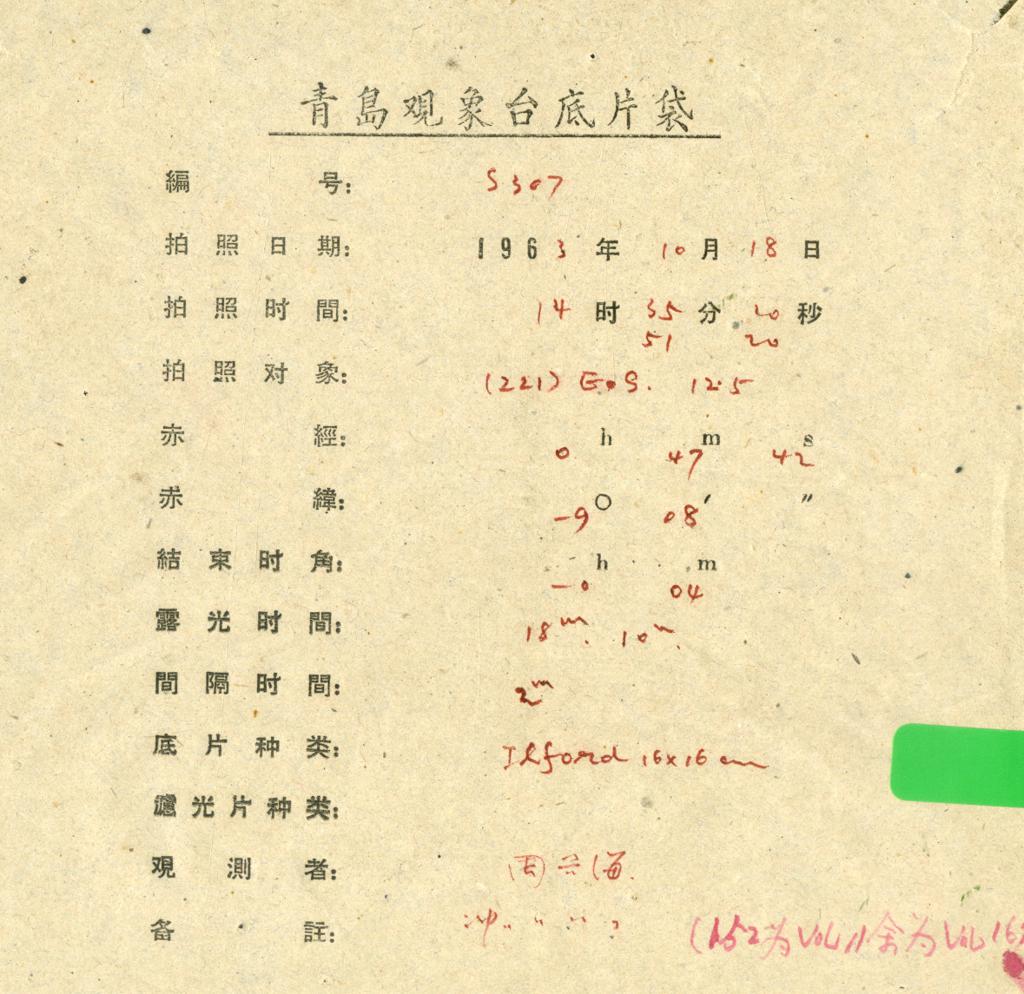 青島观象台底片袋
編 号: S307
拍照日期: 1963年 10月 18日
拍照时間: 14时 35分 20秒
51 20
拍照对象: (221) EOS. 12.5
赤 經: 0h 47m 42s
赤 緯: -9° 08′ ″
結束时角: -0h 04m
露光时間: 18m. 10m.
間隔时間: 2m
底片种类: Ilford 16x16 cm
濾光片种类:
观測者: 周
备 註: 冲
(152为VOL 11余为VOL 16